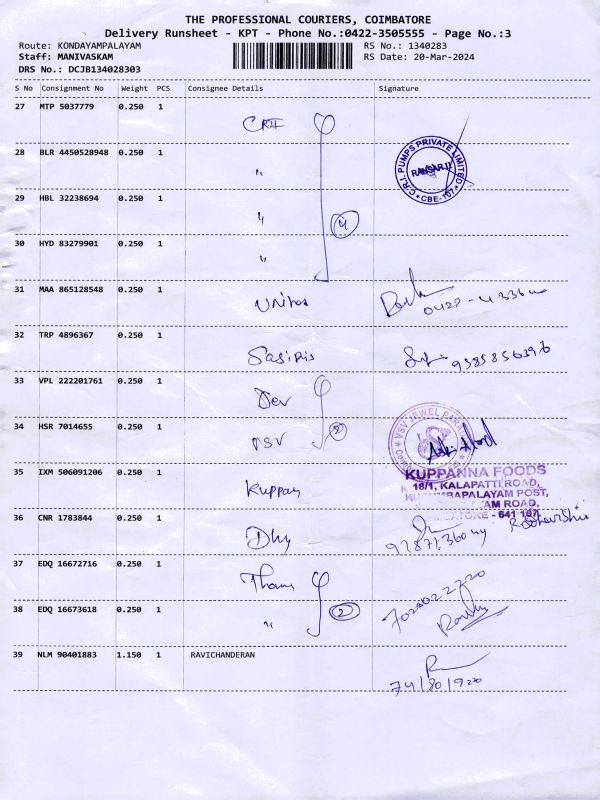 THE PROFESSIONAL COURIERS, COIMBATORE
Delivery Runsheet - KPT - Phone No.:0422-3505555 - Page No.:3
Route: KONDAYAMPALAYAM RS No.: 1340283
Staff: MANIVASKAM RS Date: 20-Mar-2024
DRS No.: DCJB134028303
S No Consignment No Weight PCS Consignee Details Signature
27 MTP 5037779 0.250 1 CRII
28 BLR 4450528948 0.250 1 " C.R.I. PUMPS PRIVATE LIMITED * CBE-107 *
29 HBL 32238694 0.250 1 " 4
30 HYD 83279901 0.250 1 "
31 MAA 865128548 0.250 1 0422-
32 TRP 4896367 0.250 1
33 VPL 222201761 0.250 1 Dev
34 HSR 7014655 0.250 1 VSV VSV JEWEL
35 IXM 506091206 0.250 1 Kuppan KUPPANNA FOODS
18/1, KALAPATTI ROAD,
POST,
AM ROAD,
- 641 107.
36 CNR 1783844 0.250 1
37 EDQ 16672716 0.250 1
38 EDQ 16673618 0.250 1 " 2
39 NLM 90401883 1.150 1 RAVICHANDERAN